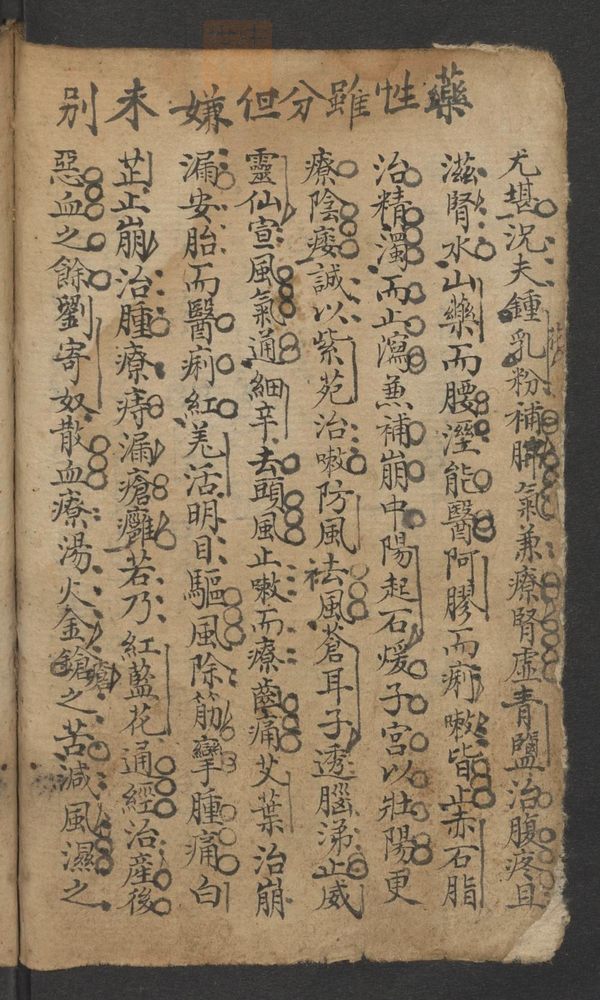 藥性雖分但嫌未別
尤堪況夫鍾乳粉補肺氣兼療腎虛青鹽治腹疼且
滋腎水山藥而腰溼能醫阿膠而痢嗽皆止赤石脂
治精濁而止瀉兼補崩中陽起石煖子宮以壯陽更
療陰痿誠以紫苑治嗽防風祛風蒼耳子透腦涕止威
靈仙宣風氣通細辛去頭風止嗽而療齒痛艾葉治崩
漏安胎而醫痢紅羌活明目驅風除筋攣腫痛白
芷止崩治腫療痔漏瘡癰若乃紅藍花通經治產後
惡血之餘劉寄奴散血療湯火金鎗之苦減風濕之
瘡